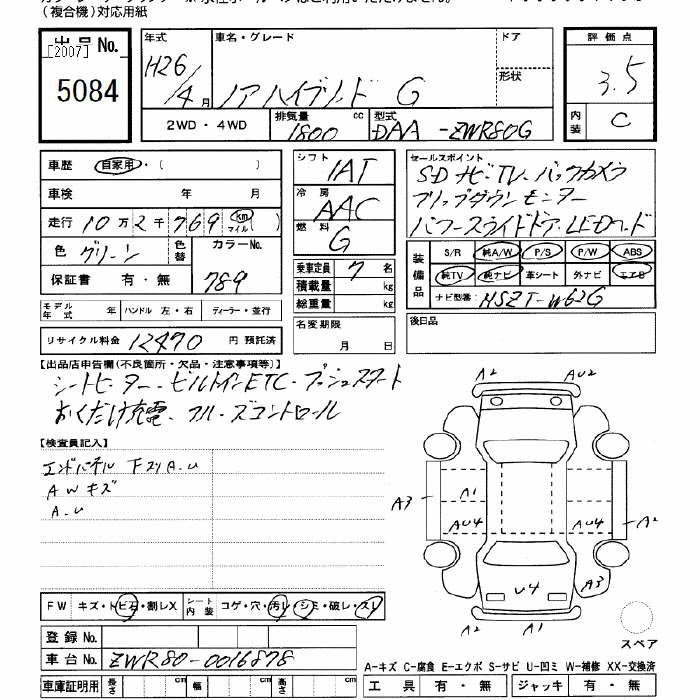 (複合機)対応用紙
出品 No.
[2007]
5084
年式 H26/4月
車名・グレード ノア ハイブリッド G
ドア
形状
2WD・4WD
排気量 1800 cc
型式 DAA-ZWR80G
評価点 3.5
内装 C
車歴 自家用・( )
車検 年 月
走行 10万2千769 km マイル( )
色 グリーン
色替
カラーNo. 789
保証書 有・無
シフト IAT
冷房 AAC
燃料 G
乗車定員 7 名
積載量 kg
総重量 kg
セールスポイント
SDナビ・TV、バックカメラ
フリップダウンモニター
パワースライドドア・LEDヘッド
装備品
S/R 純A/W P/S P/W ABS
純TV 純ナビ 革シート 外ナビ エアB
ナビ型番: NSZT-W62G
モデル年式 年 ハンドル 左・右 ディーラー・並行
リサイクル料金 12470 円 預託済
名変期限 月 日
後日品
【出品店申告欄(不良箇所・欠品・注意事項等)】
シートヒーター・ビルトインETC・プッシュスタート
おくだけ充電、クルーズコントロール
【検査員記入】
エンドパネル
A W キズ
A.U
A2 AU2
A3 A1 AU4 AU4 A2
U4 A3
A2 A1
スペア
FW キズ・トビ石・割レX シート内装 コゲ・穴・汚レ・シミ・破レ・スレ
登録 No.
車台 No. ZWR80-0016878
車庫証明用 長さ cm 幅 cm 高さ cm
A-キズ C-腐食 E-エクボ S-サビ U-凹ミ W-補修 XX-交換済
工具 有・無 ジャッキ 有・無